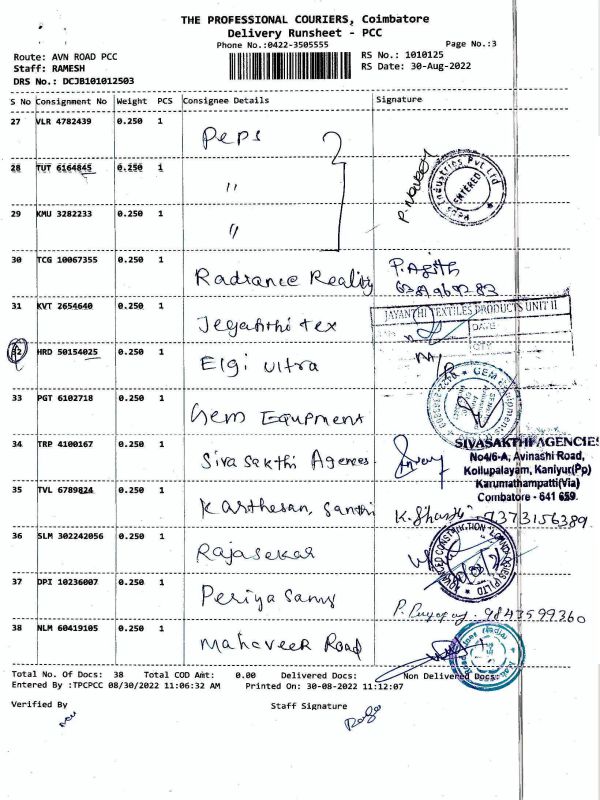 THE PROFESSIONAL COURIERS, Coimbatore
Delivery Runsheet - PCC
Phone No.:0422-3505555
Page No.:3
Route: AVN ROAD PCC
RS No.: 1010125
Staff: RAMESH
RS Date: 30-Aug-2022
DRS No.: DCJB101012503
S No Consignment No Weight PCS Consignee Details Signature
27 VLR 4782439 0.250 1 Peps
28 TUT 6164845 0.250 1 "
Peps Industries Pvt Ltd
ENTERED
29 KMU 3282233 0.250 1 "
30 TCG 10067355 0.250 1 Radrance Reality P. Ajith
31 KVT 2654640 0.250 1 Jeyanthi tex
JAYANTHI TEXTILES PRODUCTS UNIT II
DATE
32 HRD 50154025 0.250 1 Elgi Ultra
33 PGT 6102718 0.250 1 Gem Equpment
34 TRP 4100167 0.250 1 Sivasakthi Agences.
SIVASAKTHI AGENCIES
No4/6-A, Avinashi Road,
Kollupalayam, Kaniyur(Pp)
Karumathampatti(Via)
Coimbatore - 641 659.
35 TVL 6789824 0.250 1 Karthesan, Santhi 7373156389
36 SLM 302242056 0.250 1 Rajasekar
37 DPI 10236007 0.250 1 Periya Samy
9843599360
38 NLM 60419105 0.250 1 Mahaveer Road
Total No. Of Docs: 38 Total COD Amt: 0.00 Delivered Docs: Non Delivered Docs:
Entered By :TPCPCC 08/30/2022 11:06:32 AM Printed On: 30-08-2022 11:12:07
Verified By Staff Signature